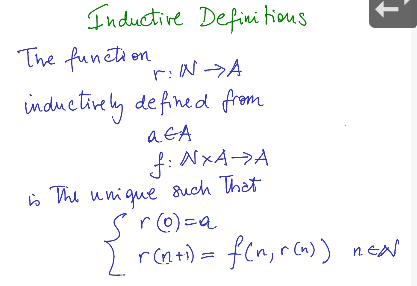 Inductive Definitions
The function
r: ℕ → A
inductively defined from
a ∈ A
f: ℕ × A → A
is the unique such that
{ r(0) = a
r(n+1) = f(n, r(n)) n ∈ ℕ